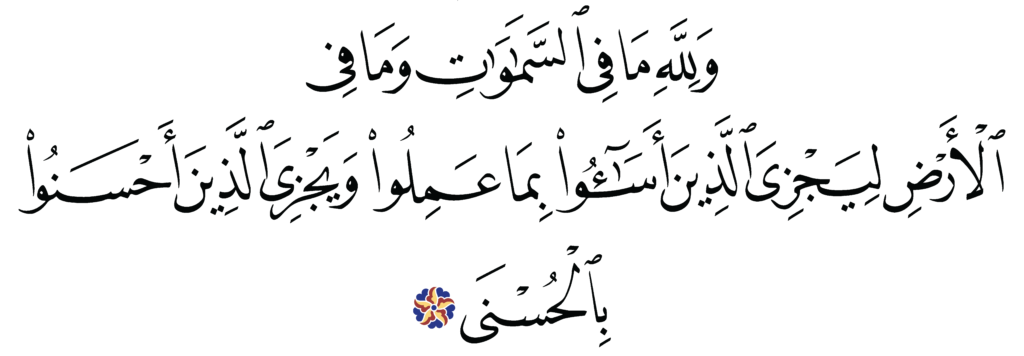 وَلِلَّهِ مَا فِي ٱلسَّمَٰوَٰتِ وَمَا فِي
ٱلْأَرْضِ لِيَجْزِيَ ٱلَّذِينَ أَسَٰٓـُٔوا۟ بِمَا عَمِلُوا۟ وَيَجْزِيَ ٱلَّذِينَ أَحْسَنُوا۟
بِٱلْحُسْنَى